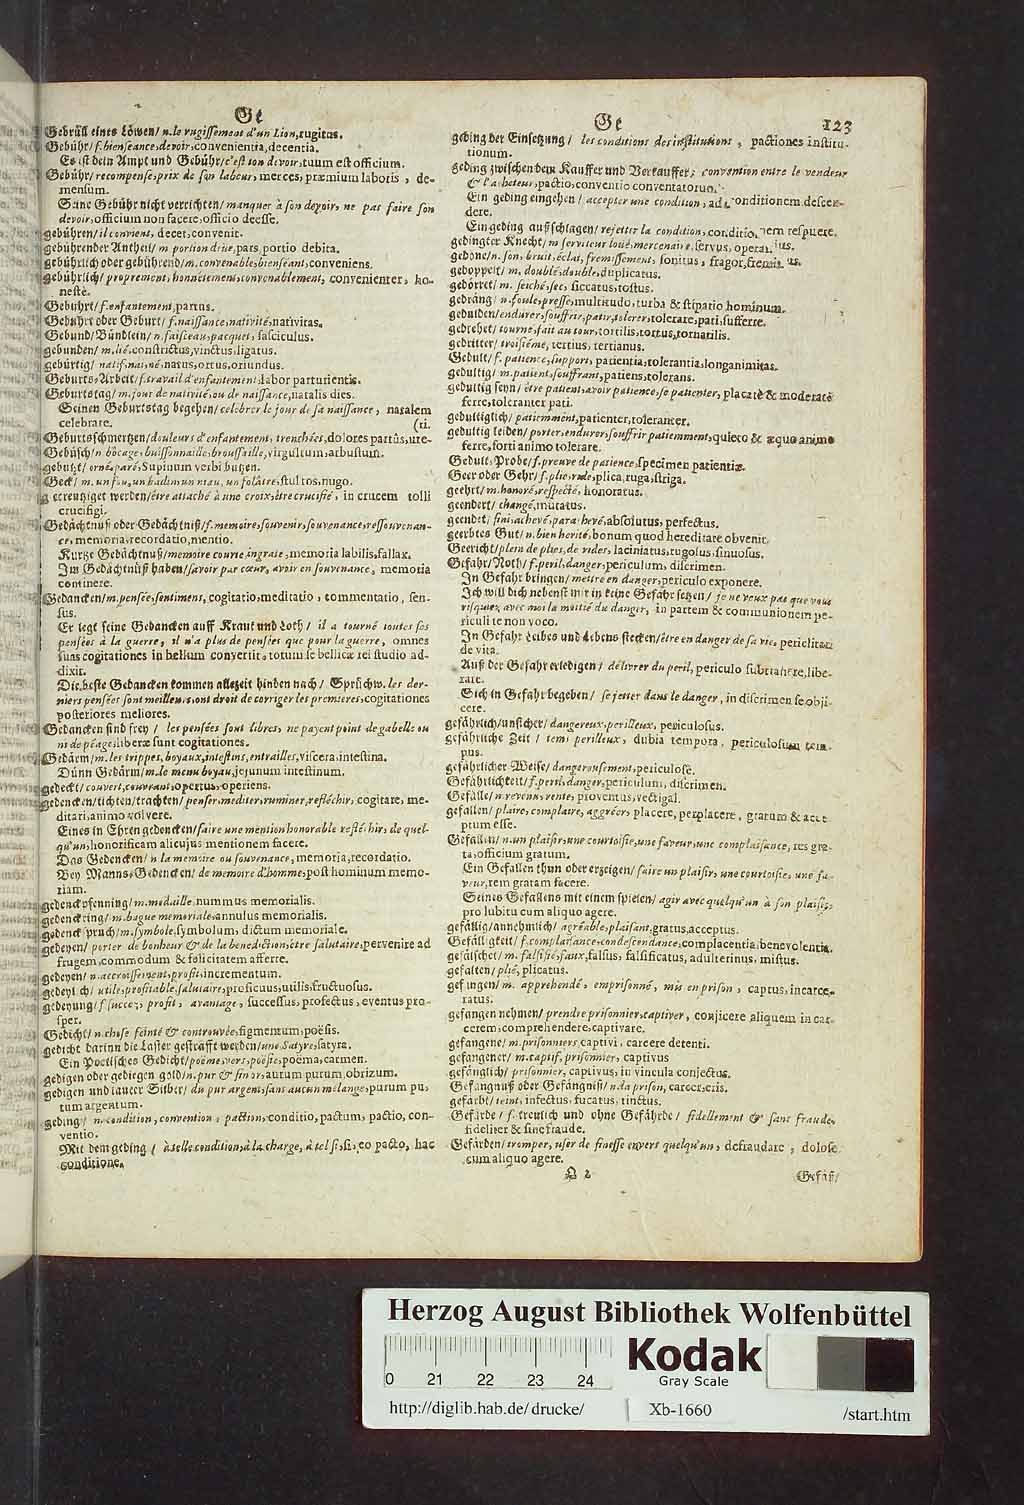 Ge
Gebrüll eines Löwen/ n. le rugissement d'un Lion, rugitus.
Gebühr/ f. bienseance, devoir, convenientia, decentia.
Es ist dein Ampt und Gebühr/ c'est ton devoir, tuum est officium.
Gebühr/ recompense, prix de son labour, merces, præmium laboris, de-
mensum.
Seine Gebühr nicht verrichten/ manquer à son devoir, ne pas faire son
devoir, officium non facere, officio deesse.
gebühren/ il convient, decet, convenit.
gebührender Antheil/ m portion deüe, pars, portio debita.
gebührlich oder gebührend/ m. convenable, bienseant, conveniens.
gebührlich/ proprement, honnêtement, convenablement, convenienter, ho-
nestè.
Gebuhrt/ f. enfantement, partus.
Gebuhrt oder Geburt/ f. naissance, nativité, nativitas.
Gebund/ Bündlein/ n. faisceau, pacquet, fasciculus.
gebunden/ m. lié, constrictus, vinctus, ligatus.
gebürtig/ natif, naî, né, natus, ortus, oriundus.
Geburts-Arbeit/ f. travail d'enfantement, labor parturientis.
Geburtstag/ m. jour de nativité, ou de naissance, natalis dies.
Seinen Geburtstag begehen/ celebrer le jour de sa naissance, natalem
celebrare. (ri.
Geburtsschmertzen/ douleurs d'enfantement, trenchées, dolores partûs, ute-
Gebüsch/ n bocage, buissonnaille, broussaille, virgultum, arbustum.
gebutzt/ orné, paré, Supinum verbi butzen.
Geck/ m. un fou, un badin, un niau, un folâtre, stultus, nugo.
gecreutziget werden/ être attaché à une croix, être crucifié, in crucem tolli
crucifigi.
Gedächtnuß oder Gedächtniß/ f. memoire, souvenir, souvenance, ressouvenan-
ce, memoria, recordatio, mentio.
Kurtze Gedächtnuß/ memoire courte, ingrate, memoria labilis, fallax.
Im Gedächtnuß haben/ savoir par cœur, avoir en souvenance, memoria
continere.
Gedancken/ m. pensée, sentiment, cogitatio, meditatio, commentatio, sen-
sus.
Er legt seine Gedancken auff Kraut und Loth/ il a tourné toutes ses
pensées à la guerre, il n'a plus de pensées que pour la guerre, omnes
suas cogitationes in bellum convertit, totum se bellicæ rei studio ad-
dixit.
Die beste Gedancken kommen allezeit hinden nach/ Sprüchw. les der-
niers pensées sont meilleus, ont droit de corriger les premieres, cogitationes
posteriores meliores.
Gedancken sind frey/ les pensées sont libres, ne payent point de gabelle ou
ni de péage, liberæ sunt cogitationes.
Gedärm/ m. les trippes, boyaux, intestins, entrailles, viscera, intestina.
Dünn Gedärm/ m. le menu boyau, jejunum intestinum.
gedeckt/ couvert, couvrant, opertus, operiens.
gedencken/ tichten/ trachten/ penser, mediter, ruminer, refléchir, cogitare, me-
ditari, animo volvere.
Eines in Ehren gedencken/ faire une mention honorable refléchir, de quel-
qu'un, honorificam alicujus mentionem facere.
Das Gedencken/ n la memoire ou souvenance, memoria, recordatio.
Bey Manns-Gedencken/ de memoire d'homme, post hominum memo-
riam.
gedenckpfenning/ m. medaille, nummus memorialis.
gedenckring/ m. bague memoriale, annulus memorialis.
gedenckspruch/ m. symbole, symbolum, dictum memoriale.
gedeyen/ porter de bonheur & de la benediction, être salutaire, pervenire ad
frugem, commodum & felicitatem afferre.
gedeyen/ n. accroissement, profit, incrementum.
gedeylich/ utile, profitable, salutaire, proficuus, utilis, fructuosus.
gedeyung/ f. succez, profit, avantage, successus, profectus, eventus pro-
sper.
Gedicht/ n. chose feinte & controuvée, figmentum, poësis.
gedicht darinn die Laster gestrafft werden/ une Satyre, satyra.
Ein Poetisches Gedicht/ poëme, vers, poësie, poëma, carmen.
gedigen oder gediegen gold/ n. pur & fin or, aurum purum, obrizum.
gedigen und lauter Silber/ du pur argent, sans aucun mélange, purum pu-
tum argentum.
geding/ n. condition, convention, paction, conditio, pactum, pactio, con-
ventio.
Mit dem geding/ à telle condition, à la charge, à tel si, si, eo pacto, hac
conditione.
Ge
123
geding der Einsetzung/ les conditions des institutions, pactiones institu-
tionum.
geding zwischen dem Kauffer und Verkauffer; convention entre le vendeur
& l'acheteur, pactio, conventio conventatorum.
Ein geding eingehen/ accepter une condition, ad conditionem descen-
dere.
Ein geding außschlagen/ rejetter la condition, conditionem respuere.
gedingter Knecht/ m serviteur loué, mercenaire, servus, operarius.
gedöne/ n. son, bruit, éclat, fremissement, sonitus, fragor, fremitus.
gedoppelt/ m. doublé, double, duplicatus.
gedörret/ m. seiché, sec, siccatus, tostus.
gedräng/ n. foule, presse, multitudo, turba & stipatio hominum.
gedulden/ endurer, souffrir, patir, tolerer, tolerare, pati, sufferre.
gedrehet/ tourné, fait au tour, tortilis, tortus, tornatilis.
gedritter/ troisième, tertius, tertianus.
Gedult/ f. patience, support, patientia, tolerantia, longanimitas.
gedultig/ m. patient, souffrant, patiens, tolerans.
gedultig seyn/ être patient, avoir patience, se patienter, placatè & moderatè
ferre, toleranter pati.
gedultiglich/ patiemment, patienter, toleranter.
gedultig leiden/ porter, endurer, souffrir patiemment, quieto & æquo animo
ferre, forti animo tolerare.
Gedult-Probe/ f. preuve de patience, specimen patientiæ.
Geer oder Gehr/ f. plie, ride, plica, ruga, striga.
geehrt/ m. honoré, respecté, honoratus.
geendert/ changé, mutatus.
geendet/ fini, achevé, parachevé, absolutus, perfectus.
geerbtes Gut/ n. bien herité, bonum quod hereditare obvenit.
Geericht/ plein de plies, de rides, laciniatus, rugosus, sinuosus.
Gefahr/ Noth/ f. peril, danger, periculum, discrimen.
In Gefahr bringen/ mettre en danger, periculo exponere.
Ich will dich nebenst mir in keine Gefahr setzen/ je ne veux pas que vous
risquiez, avec moi la moitié du danger, in partem & communionem pe-
riculi te non voco.
In Gefahr Leibes und Lebens stecken/ être en danger de sa vie, periclitari
de vita.
Auß der Gefahr erledigen/ délivrer du peril, periculo subtrahere, libe-
rare.
Sich in Gefahr begeben/ se jetter dans le danger, in discrimen se obji-
cere.
gefährlich/ unsicher/ dangereux, perilleux, periculosus.
gefährliche Zeit/ tems perilleux, dubia tempora, periculosum tem-
pus.
gefährlicher Weise/ dangereusement, periculosè.
Gefährlichkeit/ f. peril, danger, periculum, discrimen.
Gefälle/ n revenu, rente, proventus, vectigal.
gefallen/ plaire, complaire, aggréer, placere, perplacere, gratum & acce-
ptum esse.
Gefallen/ n. un plaisir, une courtoisie, une faveur, une complaisance, res gra-
ta, officium gratum.
Ein Gefallen thun oder erzeigen/ faire un plaisir, une courtoisie, une fa-
veur, rem gratam facere.
Seines Gefallens mit einem spielen/ agir avec quelqu'un à son plaisir,
pro lubitu cum aliquo agere.
gefällig/ annehmlich/ agréable, plaisant, gratus, acceptus.
Gefälligkeit/ f. complaisance, condescendance, complacentia, benevolentia.
gefälschet/ m. falsifié, faux, falsus, falsificatus, adulterinus, mistus.
gefalten/ plié, plicatus.
gefangen/ m. apprehendé, emprisonné, mis en prison, captus, incarce-
ratus.
gefangen nehmen/ prendre prisonnier, captiver, conjicere aliquem in car-
cerem, comprehendere, captivare.
gefangene/ m. prisonniers captivi, carcere detenti.
gefangener/ m. captif, prisonnier, captivus
gefänglich/ prisonnier, captivus, in vincula conjectus.
Gefängnuß oder Gefängniß/ n. la prison, carcer, eris.
gefärbt/ teint, infectus, fucatus, tinctus.
Gefärde/ f. treulich und ohne Gefährde/ fidellement & sans fraude,
fideliter & sine fraude.
Gefärden/ tromper, user de finesse envers quelqu'un, defraudare, dolose
cum aliquo agere.
Q 2
Gefäß/
Herzog August Bibliothek Wolfenbüttel
Kodak
Gray Scale
0 21 22 23 24
http://diglib.hab.de/drucke/
Xb-1660
/start.htm